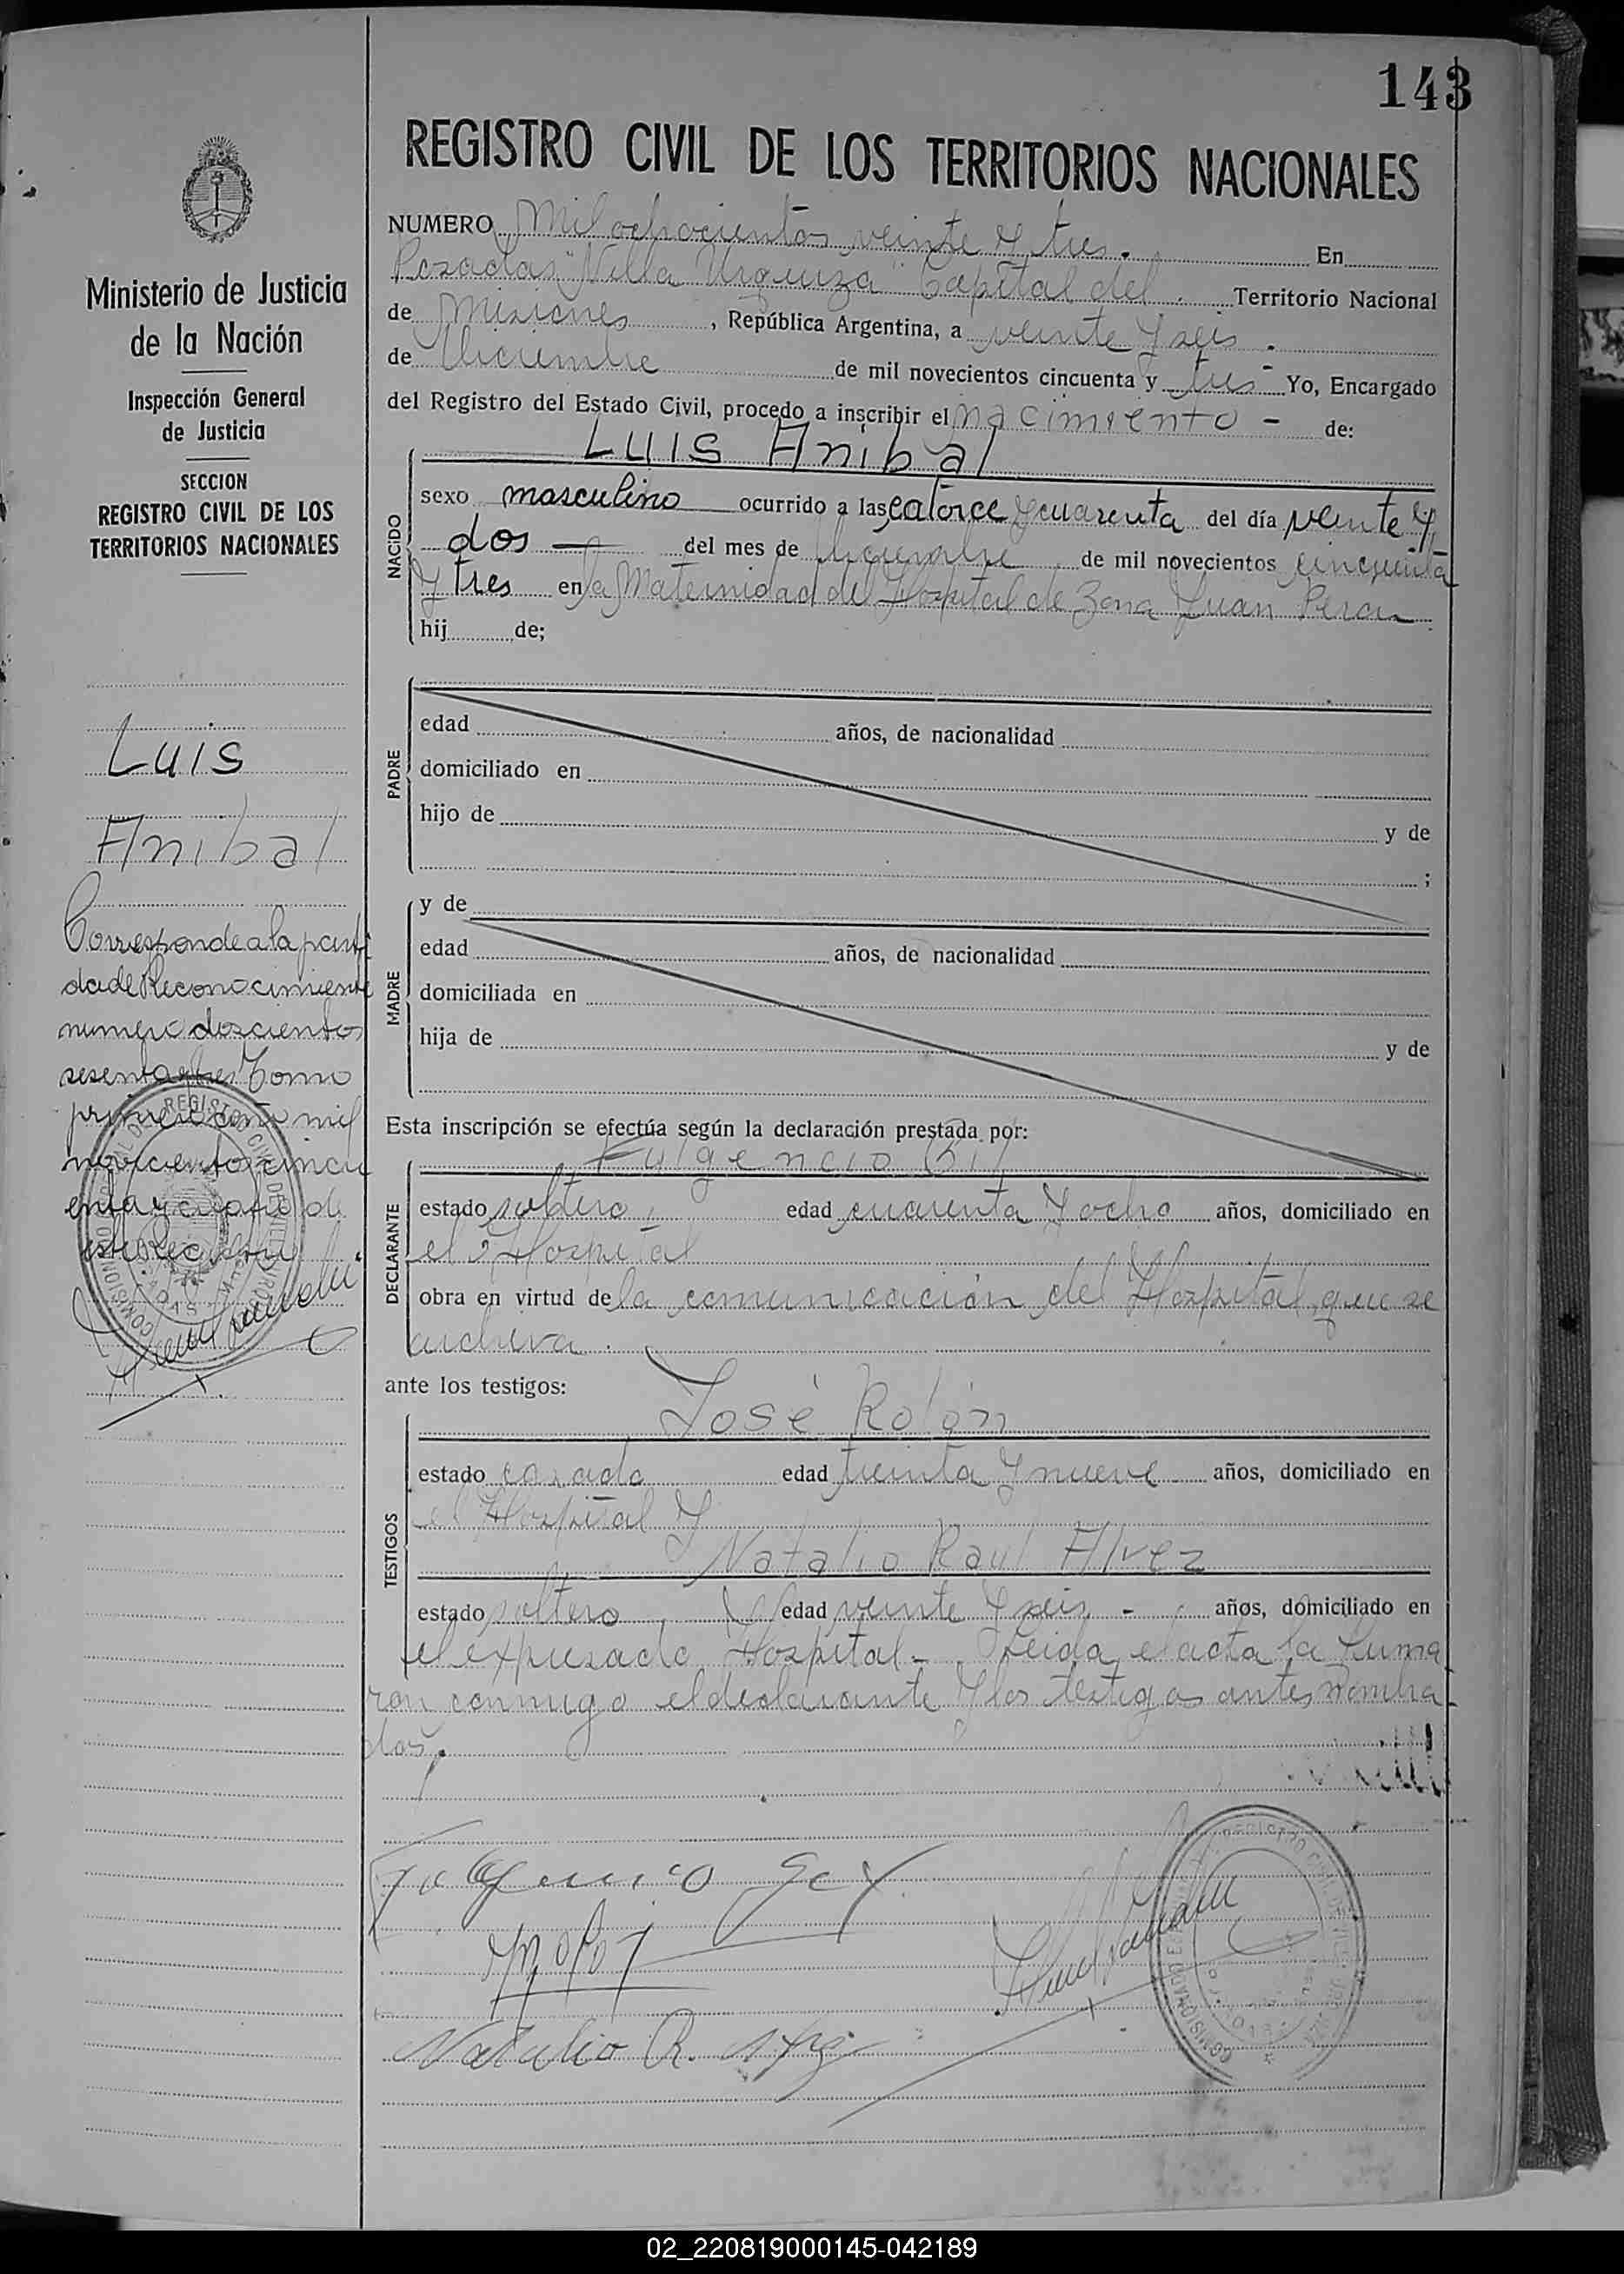 143
REGISTRO CIVIL DE LOS TERRITORIOS NACIONALES
NUMERO Mil ochocientos veinte y tres. En
Posadas "Villa Urquiza" Capital del Territorio Nacional
de Misiones, República Argentina, a veinte y seis.
de Diciembre de mil novecientos cincuenta y tres Yo, Encargado
del Registro del Estado Civil, procedo a inscribir el nacimiento - de:
Luis Anibal
NACIDO
sexo masculino ocurrido a las catorce y cuarenta del día veinte y
dos — del mes de diciembre de mil novecientos cincuenta
y tres en la Maternidad del Hospital de Zona Juan Peron
hij de;
PADRE
edad años, de nacionalidad
domiciliado en
hijo de y de
;
MADRE
y de
edad años, de nacionalidad
domiciliada en
hija de y de
Esta inscripción se efectúa según la declaración prestada por:
DECLARANTE
Fulgencio
estado soltero, edad cuarenta y ocho años, domiciliado en
el Hospital
obra en virtud de la comunicación del Hospital, que se
archiva.
ante los testigos:
TESTIGOS
José Rolón
estado casado edad treinta y nueve años, domiciliado en
el Hospital y
Natalio Raul Alvez
estado soltero, edad veinte y seis - años, domiciliado en
el expresado Hospital - Leida el acta la firma
ron conmigo el declarante y los testigos antes nombra-
dos.
Natalio R.
Ministerio de Justicia
de la Nación
Inspección General
de Justicia
SECCION
REGISTRO CIVIL DE LOS
TERRITORIOS NACIONALES
Luis
Anibal
Corresponde a la parti
da de Reconocimiento
numero doscientos
sesenta y tres Tomo
primero año mil
novecientos cincu
enta y cuatro de
02_220819000145-042189